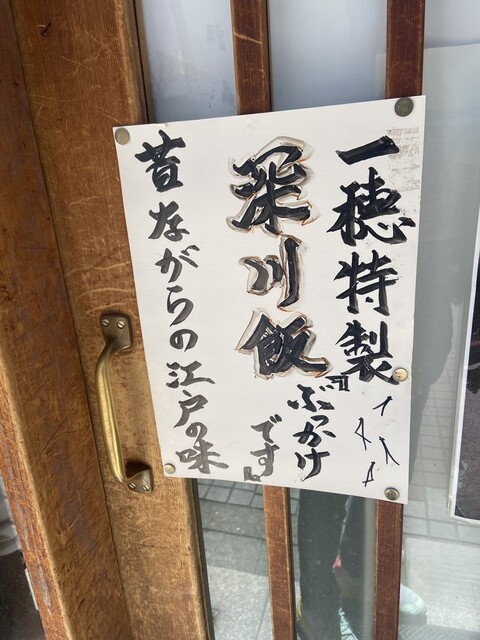 一穂特製
深川飯
『ぶっかけ
です』
昔ながらの江戸の味